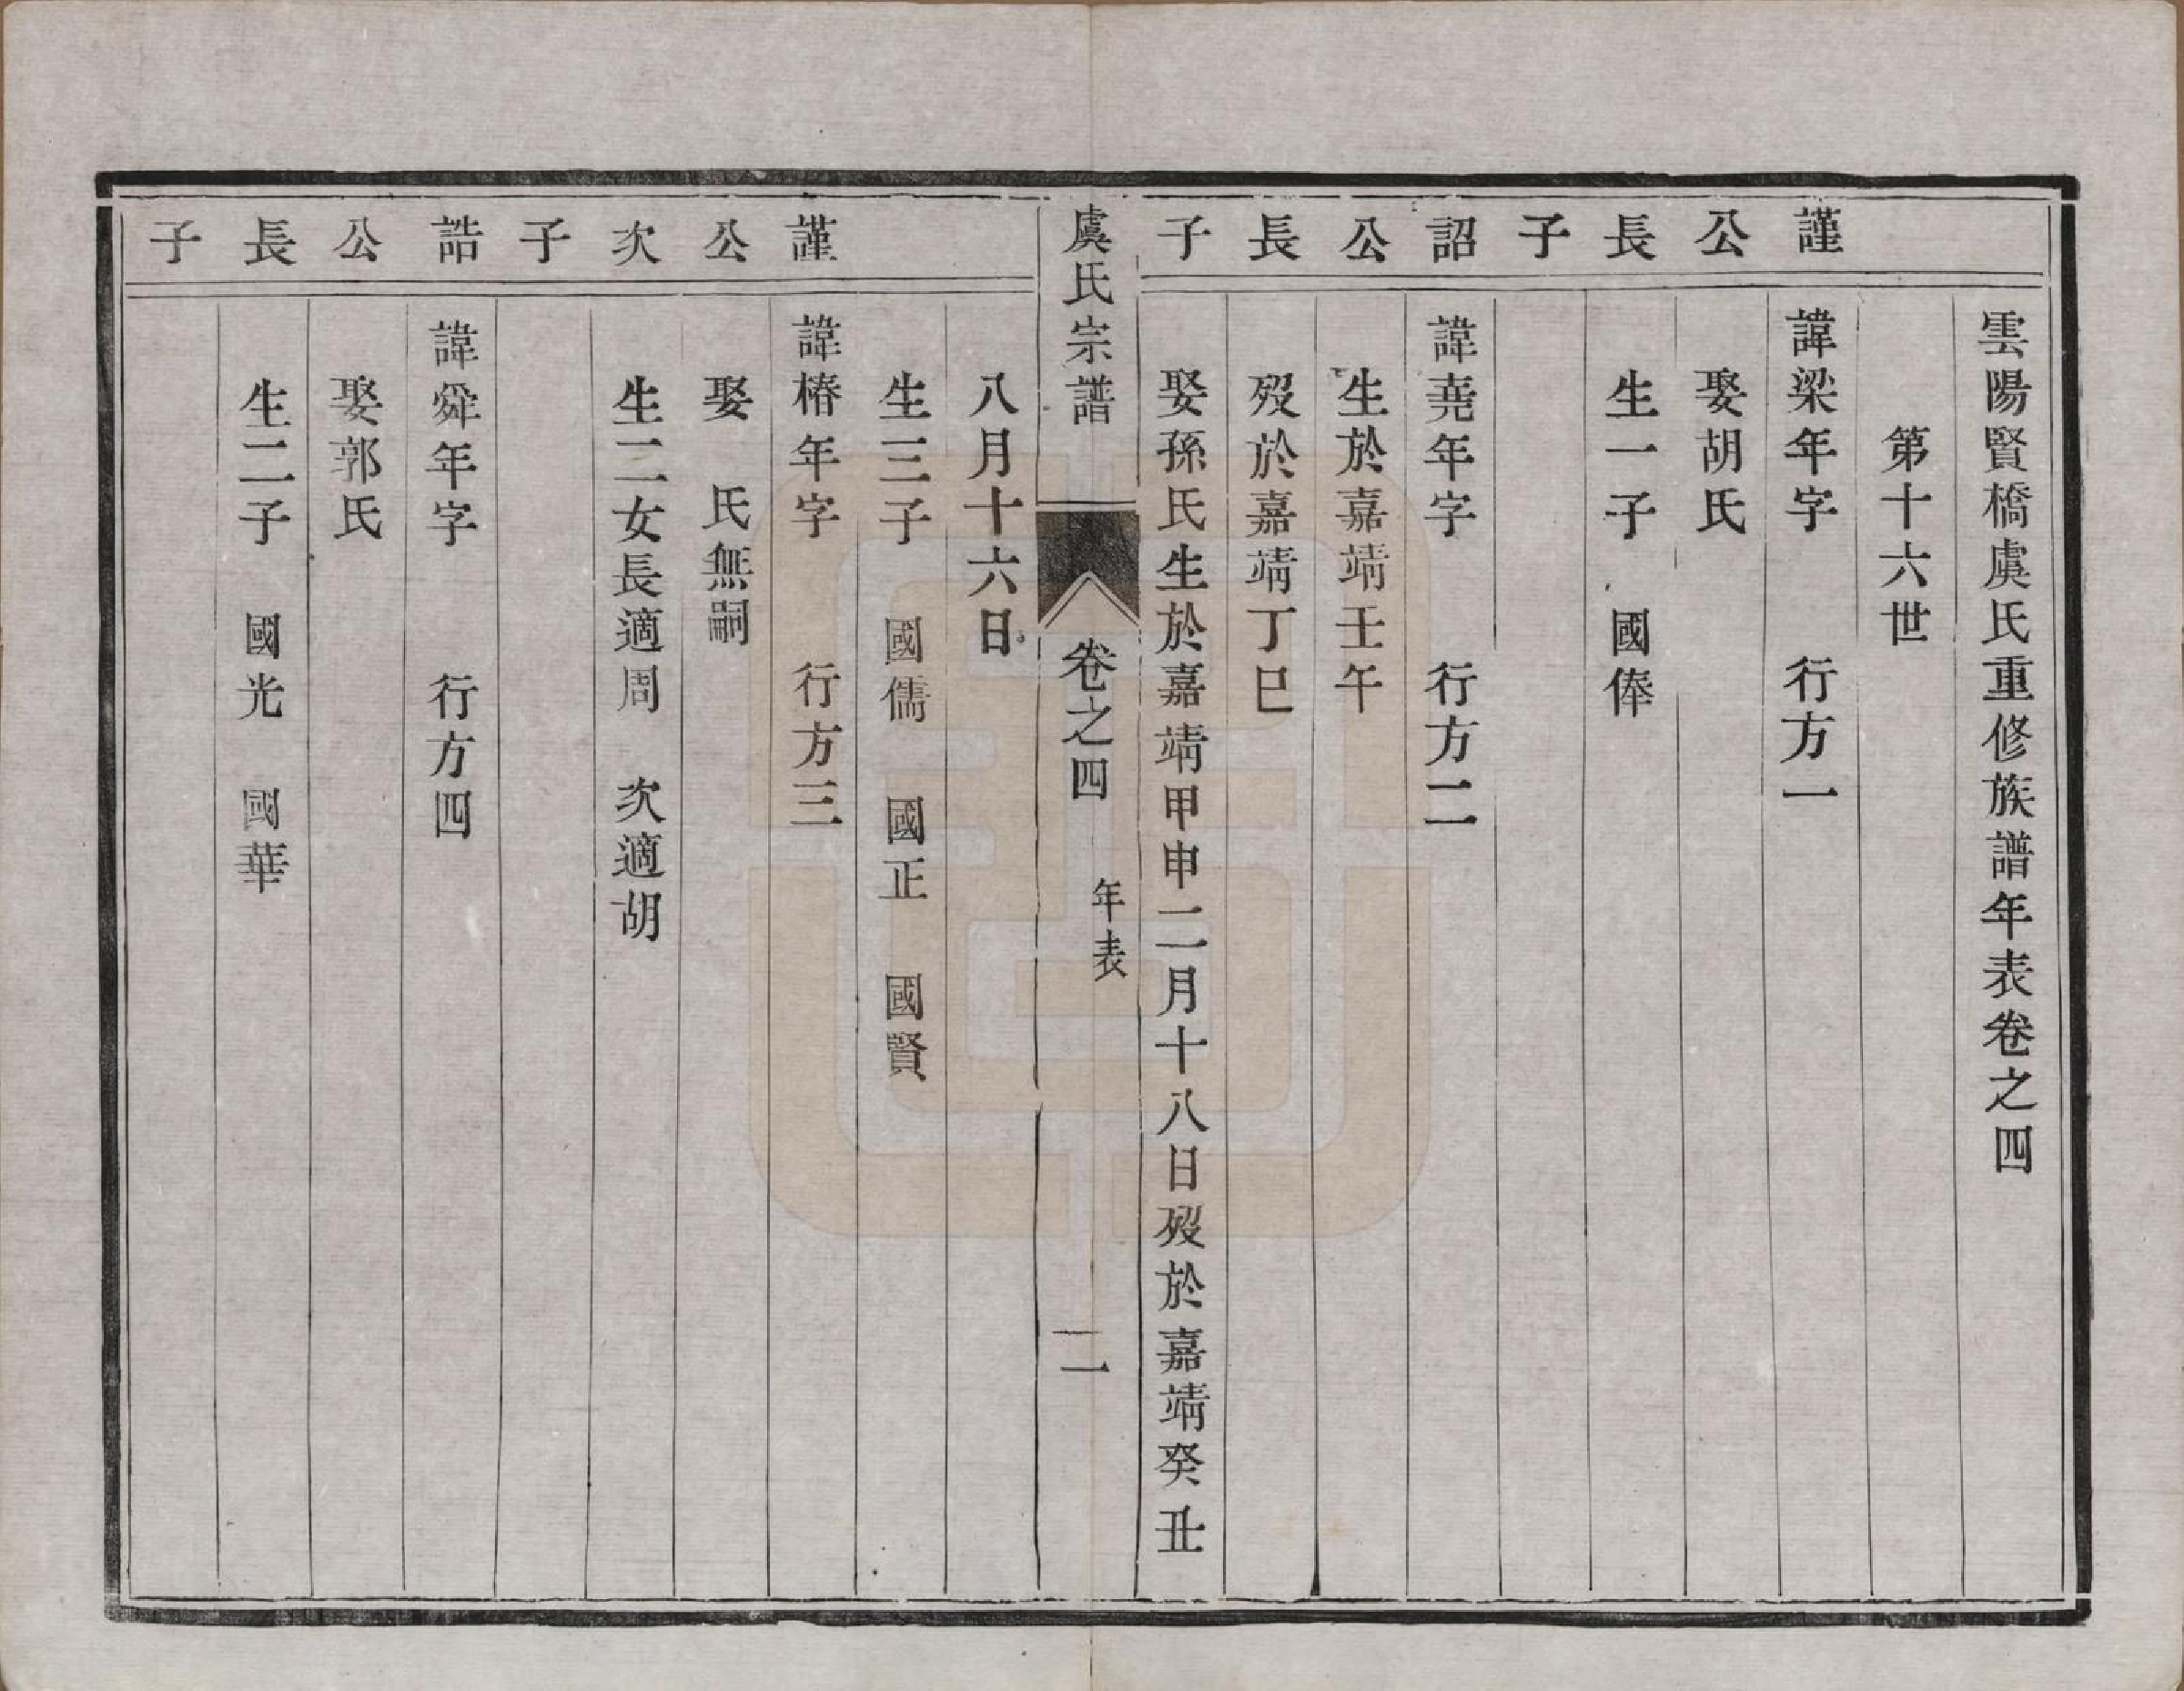 雲陽賢橋虞氏重修族譜年表卷之四
第十六世
謹公長子
諱梁年字 行方一
娶胡氏
生一子 國俸
詔公長子
諱堯年字 行方二
生於嘉靖壬午
歿於嘉靖丁巳
娶孫氏生於嘉靖甲申二月十八日歿於嘉靖癸丑
虞氏宗譜 卷之四 年表 一
八月十六日
生三子 國儒 國正 國賢
謹公次子
諱椿年字 行方三
娶 氏無嗣
生二女長適周 次適胡
誥公長子
諱舜年字 行方四
娶郭氏
生二子 國光 國華